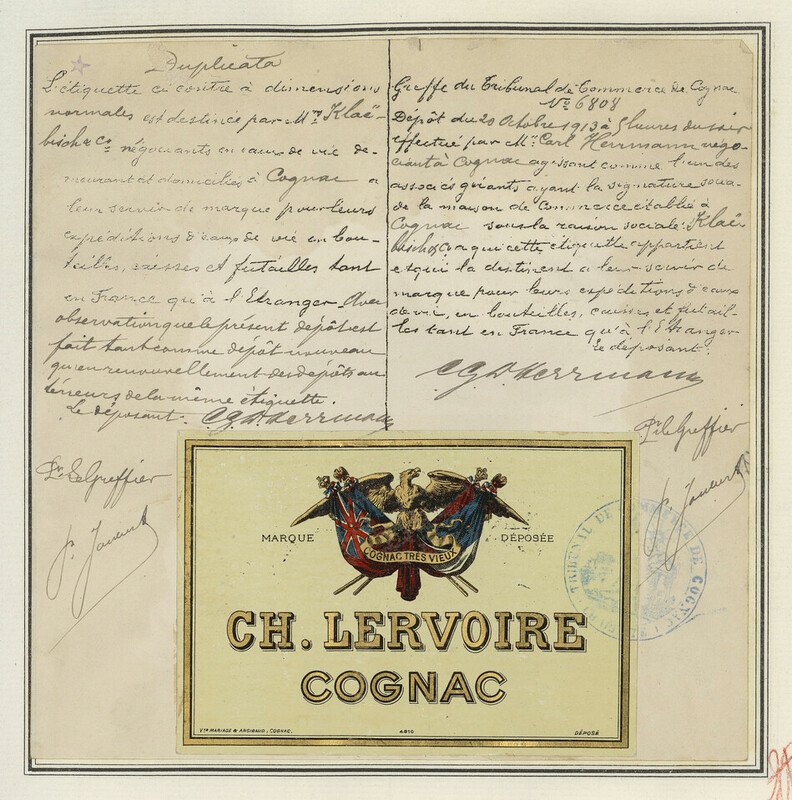 Duplicata
L'étiquette ci contre à dimensions
normales est destinée par Mrs Klaë-
bisch & Co négociants en eaux de vie de-
meurant et domiciliés à Cognac a
leur servir de marque pour leurs
expéditions d'eaux de vie en bou-
teilles, caisses et futailles tant
en France qu'à l'Etranger. Avec
observation que le présent dépôt est
fait tant comme dépôt nouveau
qu'en renouvellement des dépôts an
térieurs de la même étiquette.
Le déposant. C.G.D. Herrmann
Pr. Le Greffier
Greffe du Tribunal de Commerce de Cognac
No 6808
Dépôt du 20 Octobre 1913 à 5 heures du soir
effectué par Mr. Carl Herrmann négo-
ciant à Cognac agissant comme l'un des
associés gérants ayant la signature socia-
de la maison de Commerce établie à
Cognac sous la raison sociale: Klaë-
bisch & Co a qui cette étiquette appartient
et qui la destinent a leur servir de
marque pour leurs expéditions d'eaux
de vie, en bouteilles, caisses et futail-
les tant en France qu'à l'Etranger
Le déposant.
C.G.D. Herrmann
Pr. le Greffier
MARQUE DÉPOSÉE
COGNAC TRÈS VIEUX
CH. LERVOIRE
COGNAC
Vve MARIAGE & ANGIBAUD, COGNAC. 4810 DÉPOSÉ
TRIBUNAL DE COMMERCE DE COGNAC